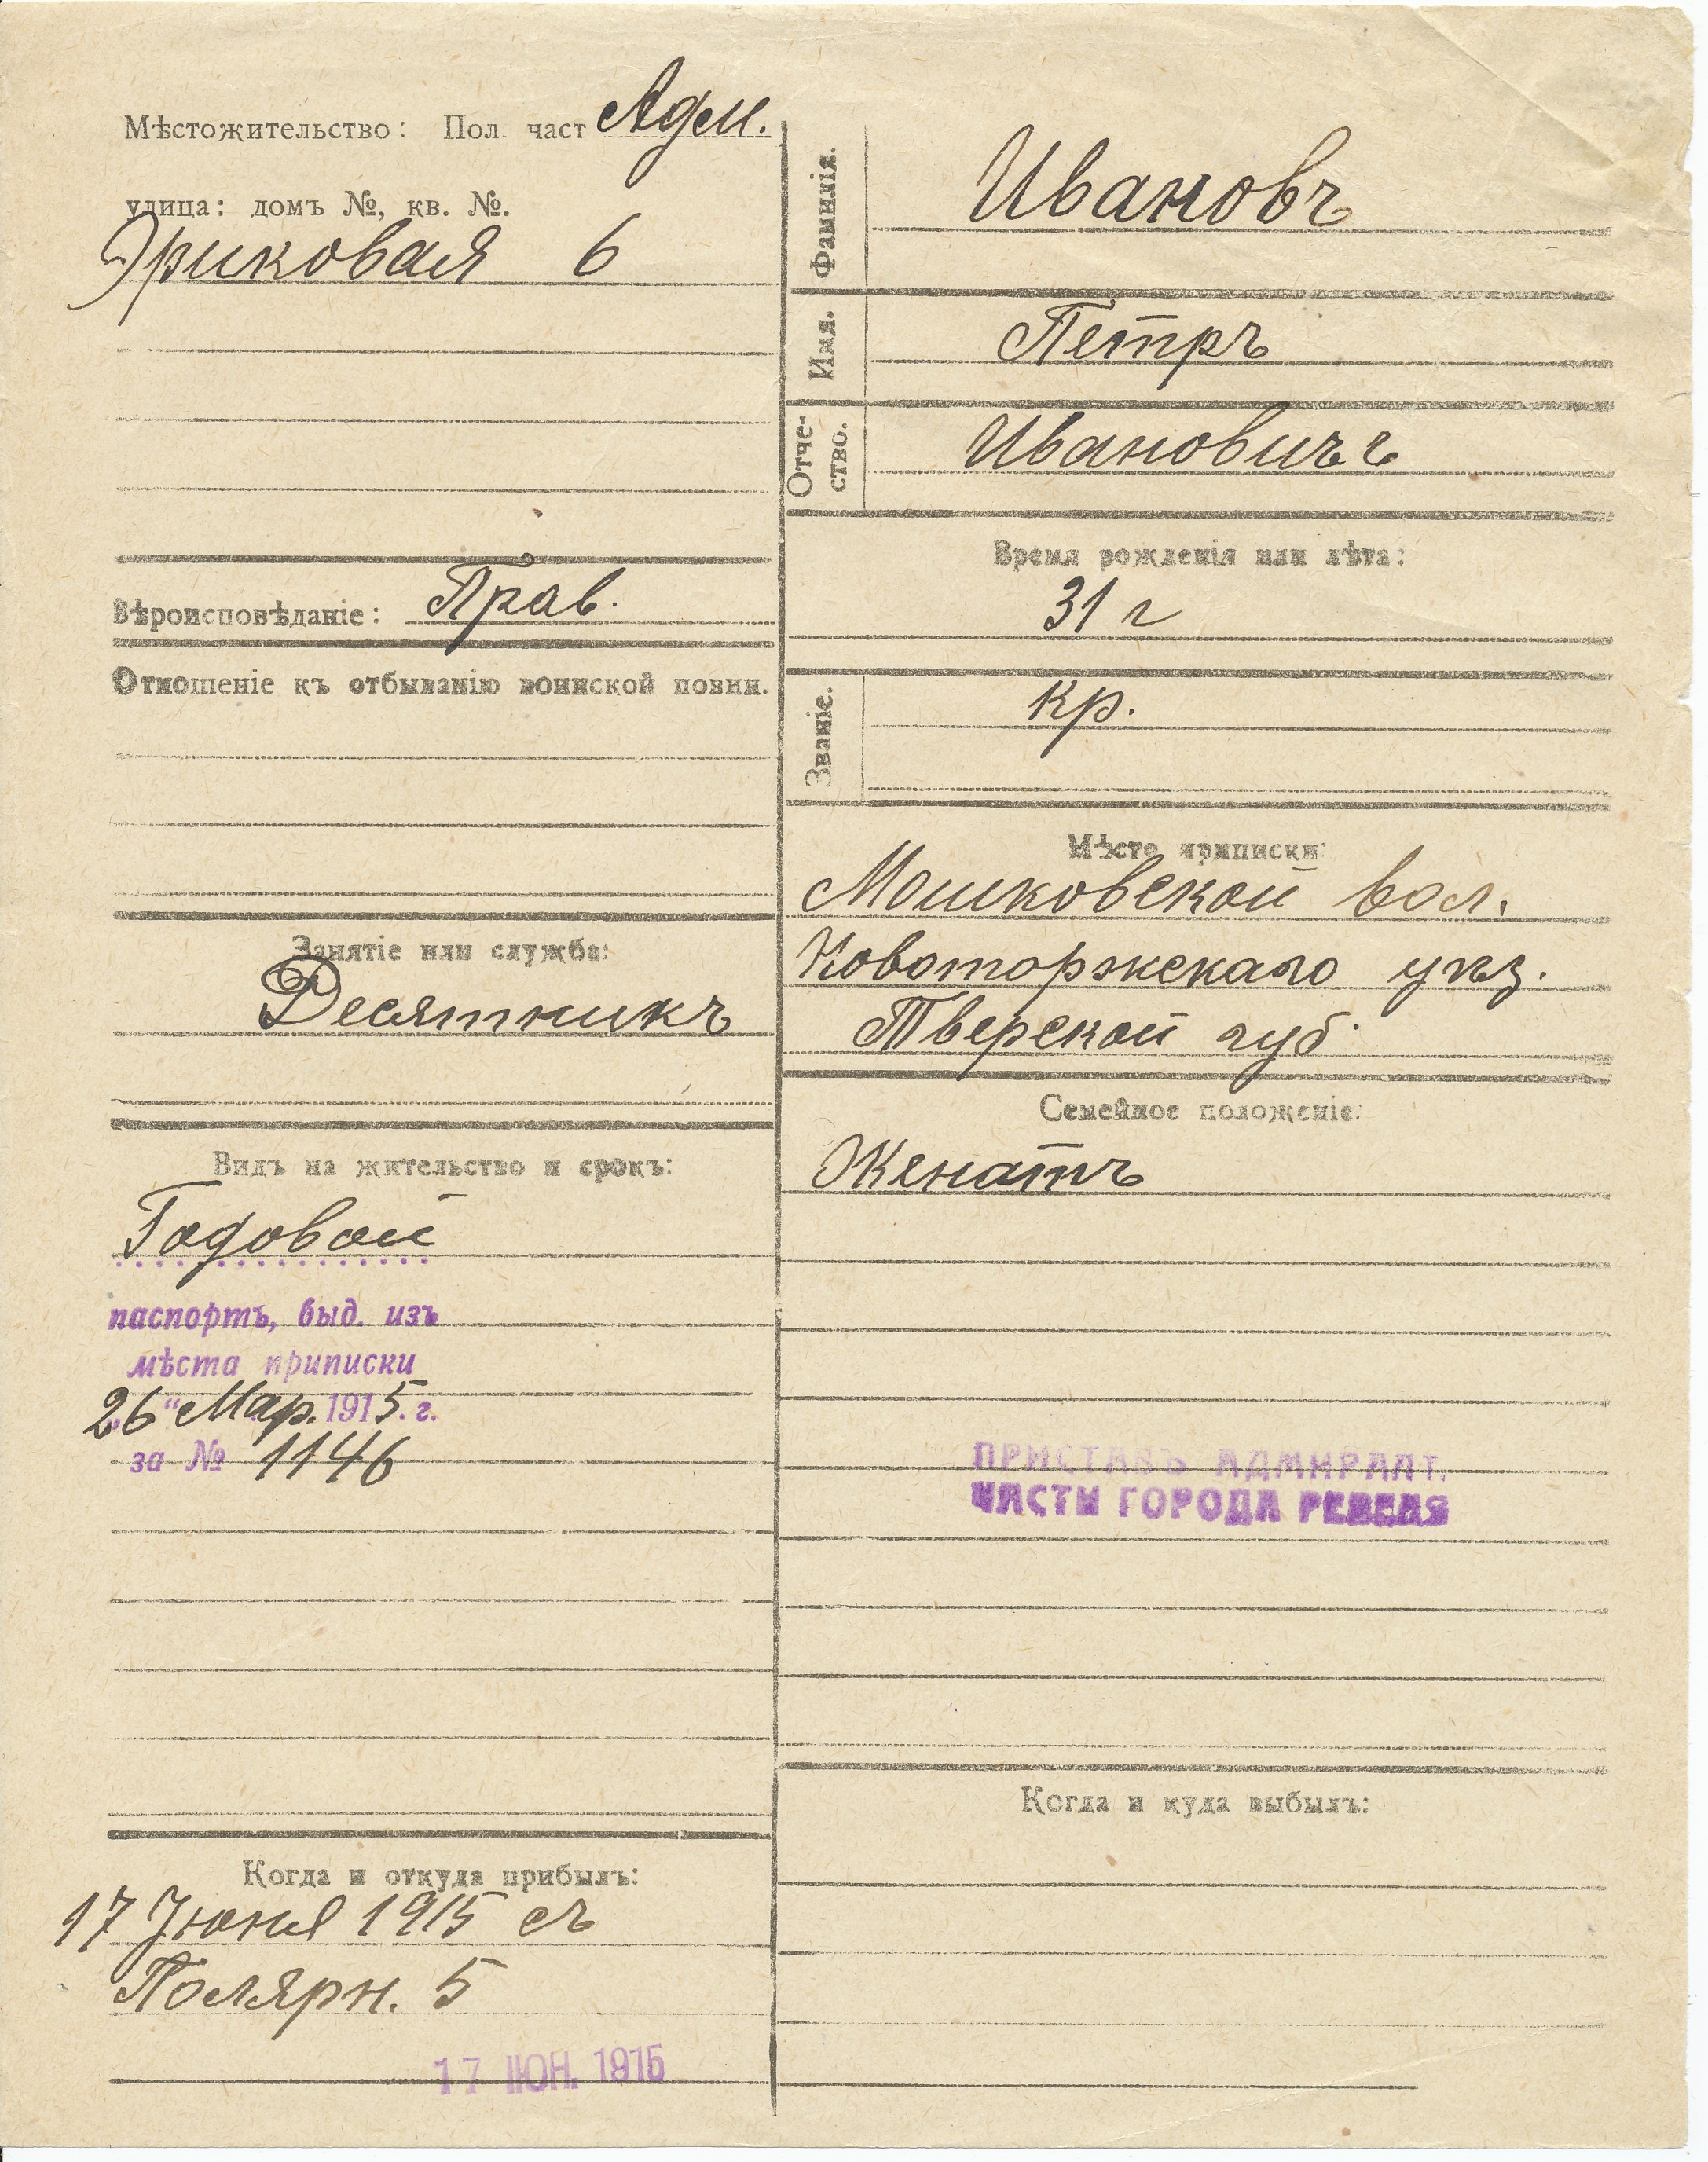 Мѣстожительство: Пол. част Адм.
улица: домъ №, кв. №.
Эриковая 6
Вѣроисповѣданіе: Прав.
Отношеніе къ отбыванію воинской повин.
Занятіе или служба:
Десятникъ
Видъ на жительство и срокъ:
Годовой
паспортъ, выд. изъ
мѣста приписки
„26“ Мар. 1915. г.
за № 1146
Когда и откуда прибылъ:
17 Іюня 1915 съ
Полярн. 5
17 ІЮН. 1915
Фамилія.
Ивановъ
Имя.
Петръ
Отче-
ство.
Ивановичъ
Время рожденія или лѣта:
31 г
Званіе.
кр.
Мѣсто приписки:
Мошковской вол.
Новоторжскаго уѣз.
Тверской губ.
Семейное положеніе:
Женатъ
ПРИСТАВЪ АДМИРАЛТ.
ЧАСТИ ГОРОДА РЕВЕЛЯ
Когда и куда выбылъ: